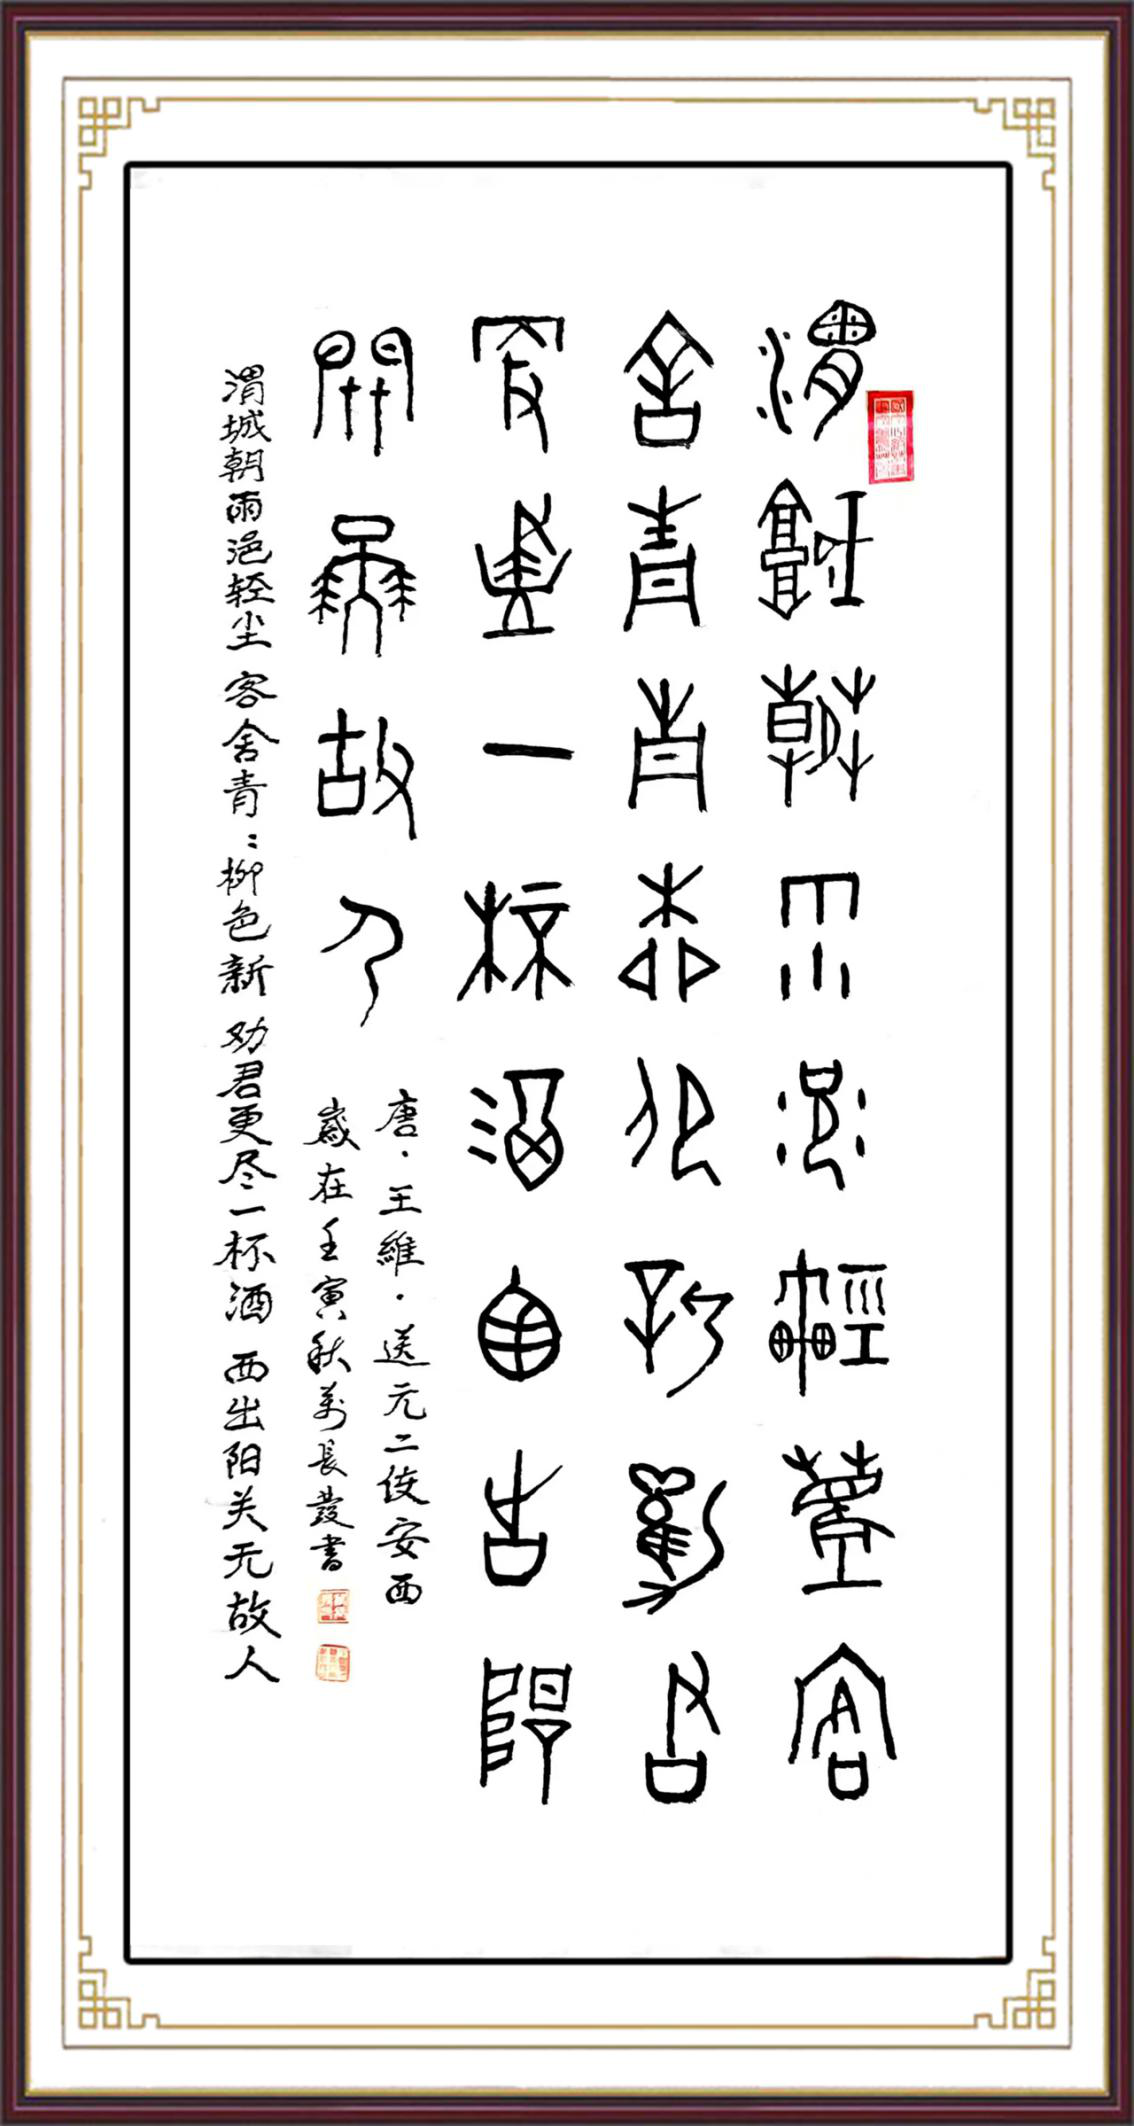 渭城朝雨浥輕塵客
舍青青柳色新勸君
更盡一杯酒西出陽
關無故人
唐·王維·送元二使安西
歲在壬寅秋萬長發書
渭城朝雨浥轻尘 客舍青〻柳色新 劝君更尽一杯酒 西出阳关无故人